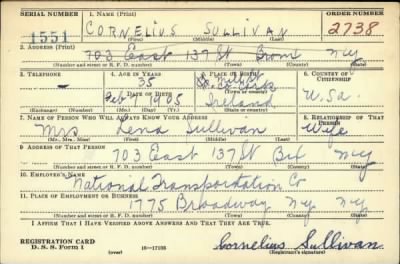 SERIAL NUMBER 1. Name (Print) ORDER NUMBER
1551 CORNELIUS SULLIVAN 2738
(First) (Middle) (Last)
2. Address (Print)
703 East 137 St Bronx NY
(Number and street or R. F. D. number) (Town) (County) (State)
3. Telephone 4. Age in Years 5. Place of Birth 6. Country of Citizenship
— 35 Co. Cork
Date of Birth (Town or county)
Feb 7 1905 Ireland U.S.a.
(Exchange) (Number) (Mo.) (Day) (Yr.) (State or country)
7. Name of Person Who Will Always Know Your Address 8. Relationship of That Person
Mrs Lena Sullivan Wife
(Mr., Mrs., Miss) (First) (Middle) (Last)
9. Address of That Person
703 East 137 St Bx NY
(Number and street or R. F. D. number) (Town) (County) (State)
10. Employer's Name
National Transportation Co
11. Place of Employment or Business
1775 Broadway Ny NY
(Number and street or R. F. D. number) (Town) (County) (State)
I Affirm That I Have Verified Above Answers and That They Are True.
REGISTRATION CARD
D. S. S. Form 1 (over) 16—17105 Cornelius Sullivan
(Registrant's signature)